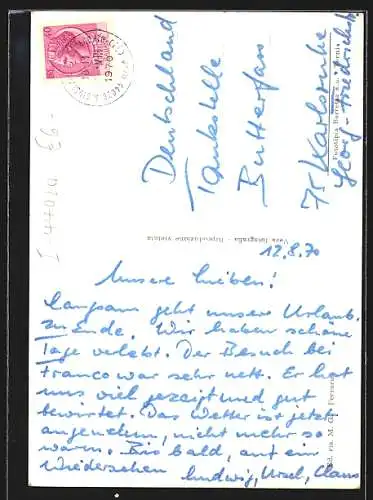 Deutschland
Tankstelle
Butterfass
75 Karlsruhe
Georg-Friedrichstr
Vera fotografia - Riproduzione vietata
12.8.70
Unsere Lieben!
Langsam geht unsere Urlaub
zu Ende. Wir haben schöne
Tage verlebt. Der Besuch bei
Franco war sehr nett. Er hat
uns viel gezeigt und gut
bewirtet. Das Wetter ist jetzt
angenehm, nicht mehr so
warm. Bis bald, auf ein
Wiedersehen Ludwig, Ursel, Claus
1970